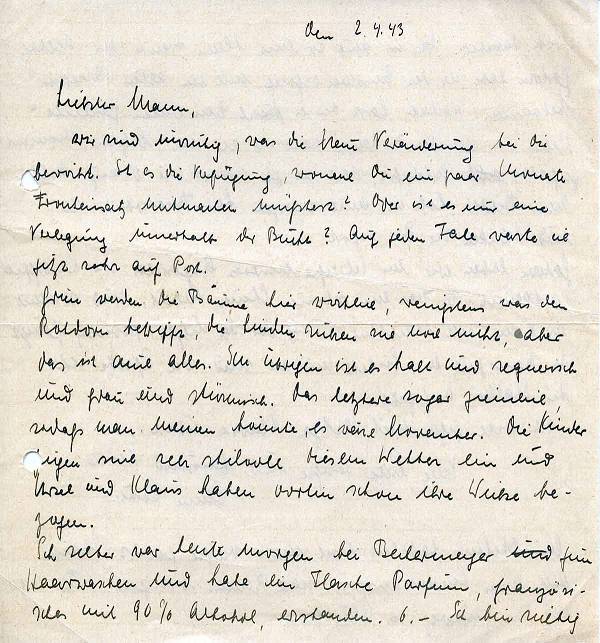 den 2.4.43
Liebster Mann,
wir sind neugierig, was die neue Veränderung bei Dir
bewirkt. Ist es die Verfügung, wonach Du ein paar Monate
Fronteinsatz mitmachen müsstest? Oder ist es nur eine
Verlegung innerhalb der Bucht? Auf jeden Fall warte ich
jetzt sehr auf Post.
Grün werden die Bäume hier, wenigstens was den
Rotdorn betrifft, die Linden rühren sich noch nicht, aber
das ist auch alles. Im übrigen ist es kalt und regnerisch
und grau und stürmisch. Das letztere sogar ziemlich,
sodaß man meinen könnte, es wäre November. Die Kinder
sich sehr stilvoll diesem Wetter ein und
Ursel und Klaus haben vorhin schon ihre be-
zogen.
Ich selber war heute morgen bei zum
Haarwaschen und habe ein Flasche Parfüm, französi-
sches mit 90% Alkohol, erstanden. 6.- Ich bin richtig